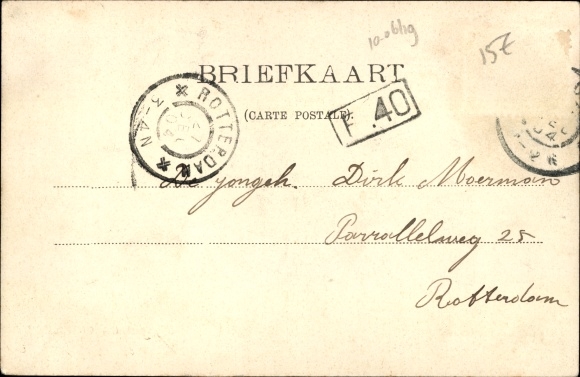 15€
BRIEFKAART
(CARTE POSTALE).
F. 40
ROTTERDAM
3-4 N
De jongeh. Dirk Moerman
Parrallelweg 25
Rotterdam